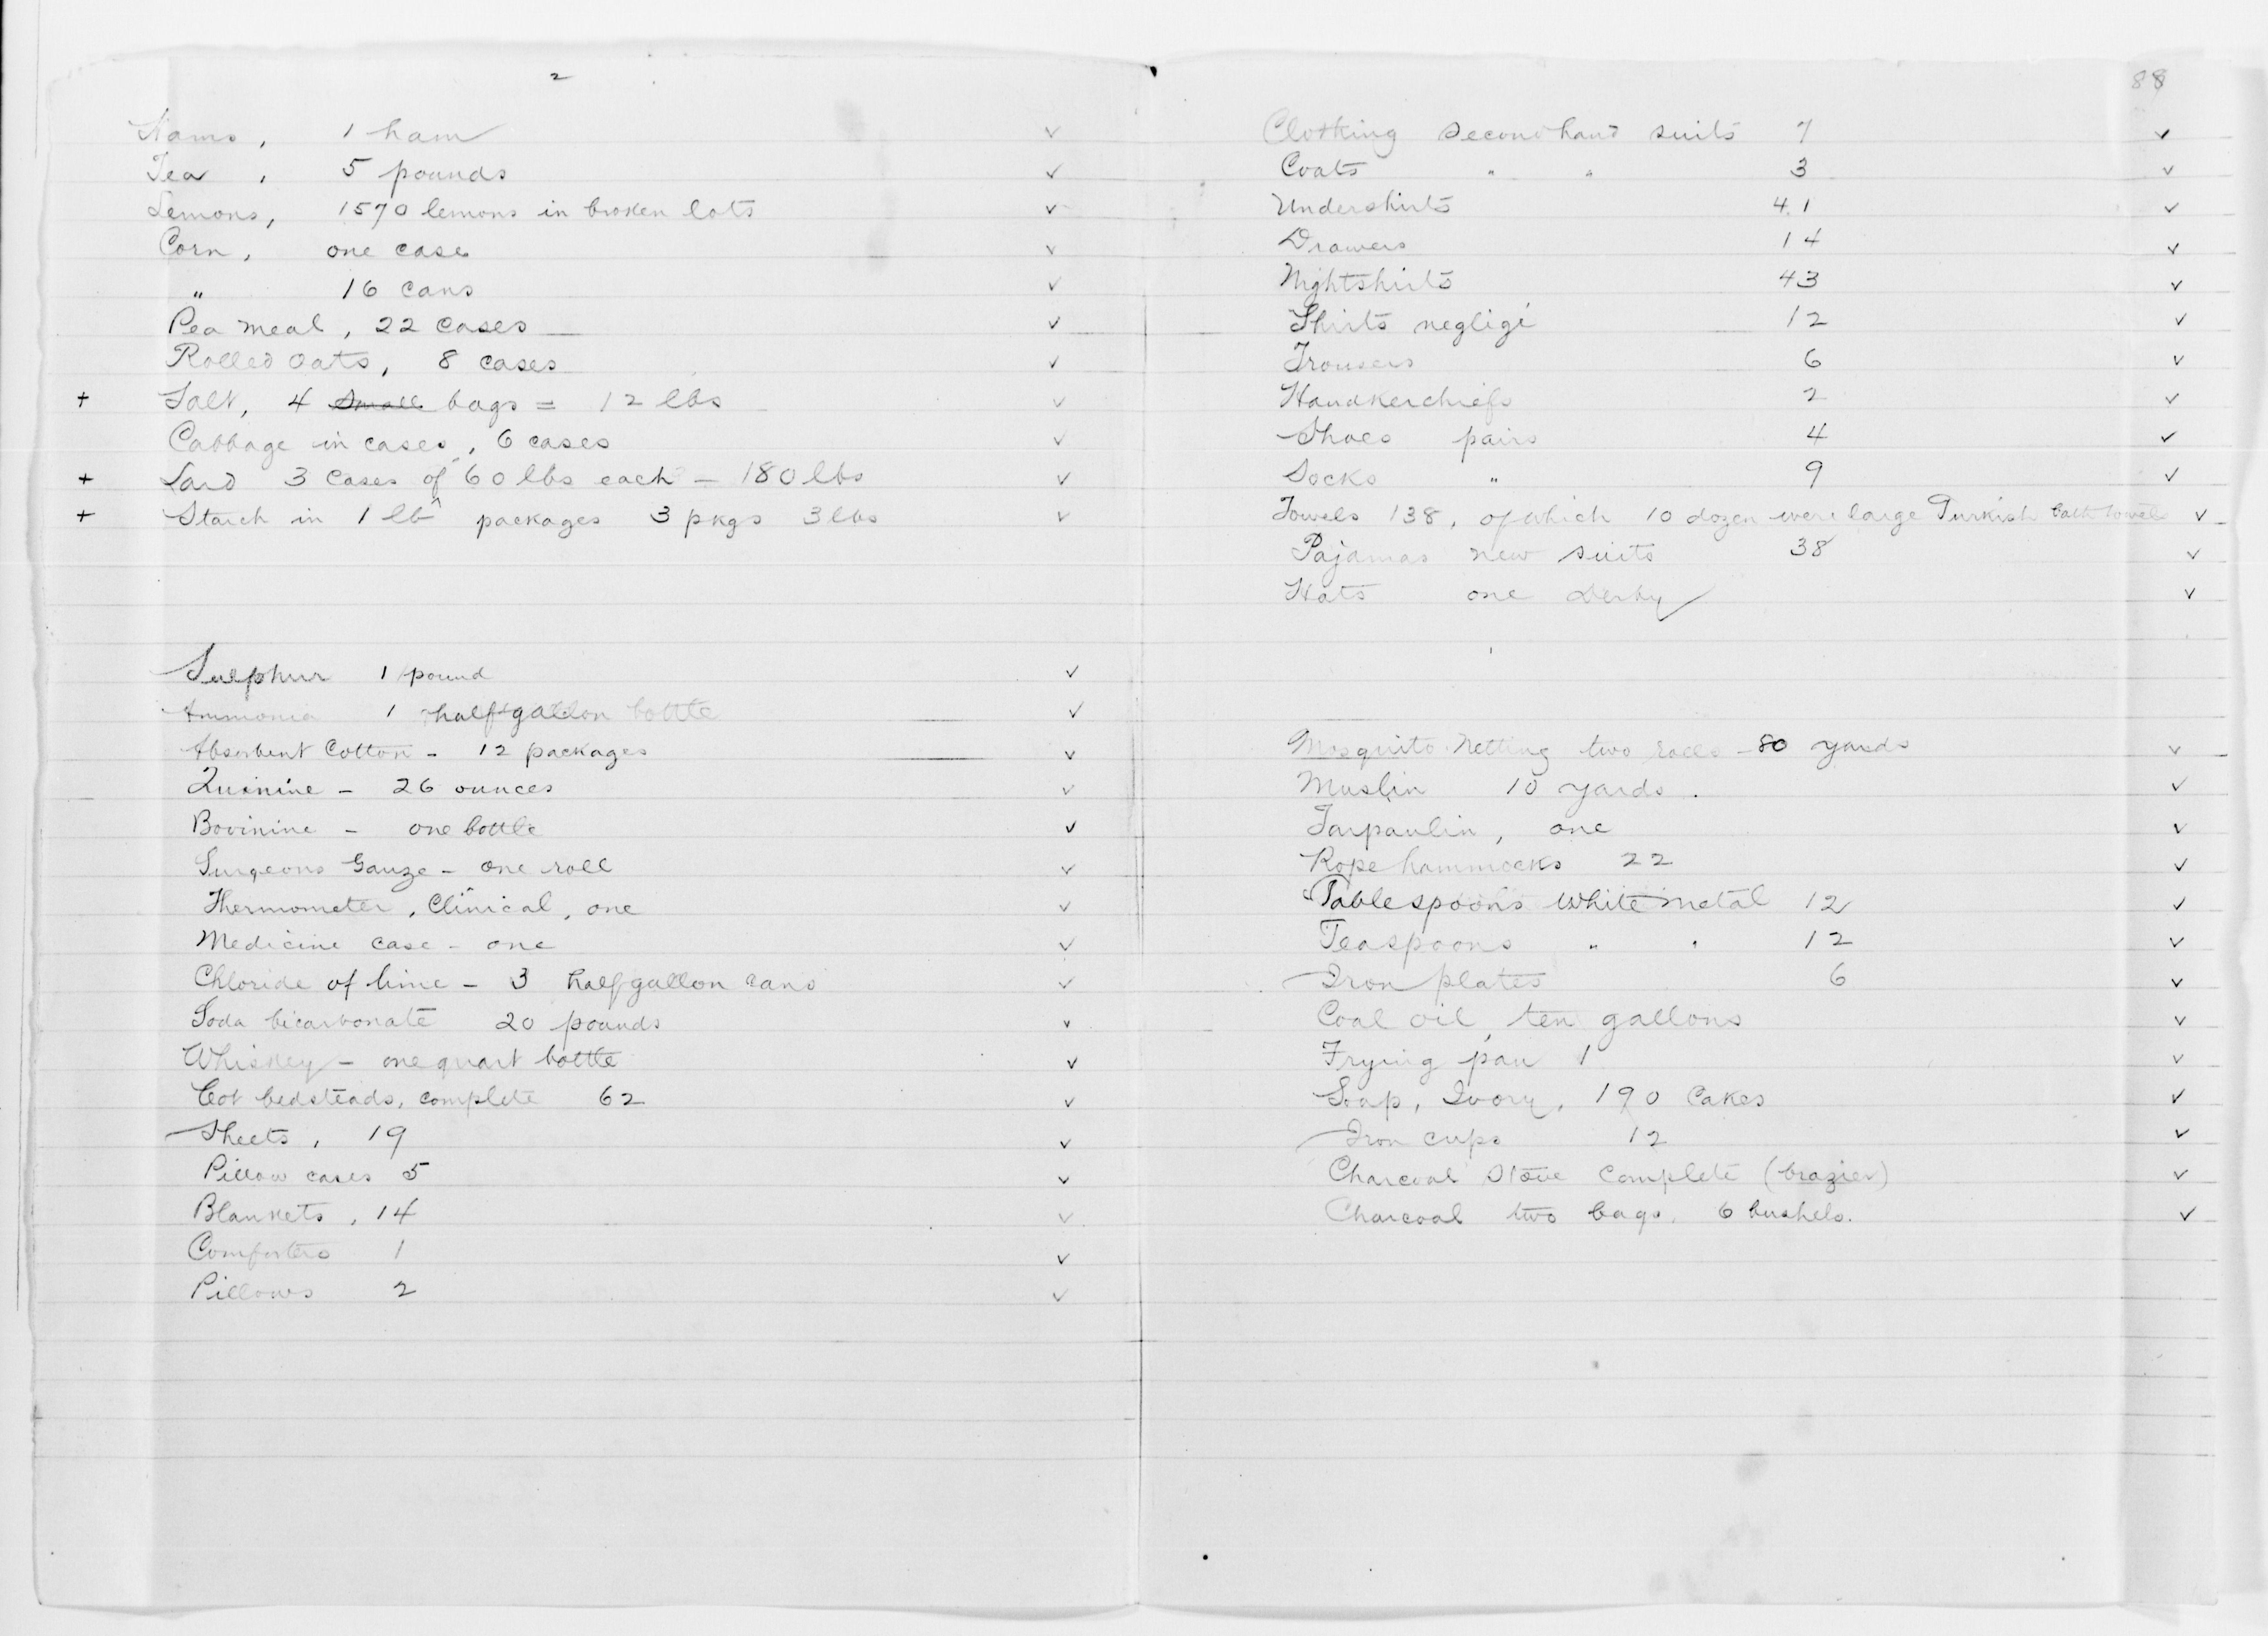 2
Hams, 1 ham ✓
Tea, 5 pounds ✓
Lemons, 1570 lemons in broken lots ✓
Corn, one case ✓
" 16 cans ✓
Pea meal, 22 cases ✓
Rolled Oats, 8 cases ✓
+ Salt, 4 small bags = 12 lbs ✓
Cabbage in cases, 6 cases ✓
+ Lard 3 cases of 60 lbs each - 180 lbs ✓
+ Starch in 1 lb packages 3 pkgs 3 lbs ✓
Sulphur 1 pound ✓
Ammonia 1 half gallon bottle ✓
Absorbent Cotton - 12 packages ✓
Quinine - 26 ounces ✓
Bovinine - one bottle ✓
Surgeons Gauze - one roll ✓
Thermometer, Clinical, one ✓
Medicine case - one ✓
Chloride of lime - 3 half gallon cans ✓
Soda bicarbonate 20 pounds ✓
Whiskey - one quart bottle ✓
Cot bedsteads, complete 62 ✓
Sheets, 19 ✓
Pillow cases 5 ✓
Blankets, 14 ✓
Comforters 1 ✓
Pillows 2 ✓
88
Clothing second hand suits 7 ✓
Coats " " 3 ✓
Undershirts 41 ✓
Drawers 14 ✓
Nightshirts 43 ✓
Shirts negligé 12 ✓
Trousers 6 ✓
Handkerchiefs 2 ✓
Shoes pairs 4 ✓
Socks " 9 ✓
Towels 138, of which 10 dozen were large Turkish bath towels ✓
Pajamas new suits 38 ✓
Hats one Derby ✓
Mosquito Netting two rolls - 80 yards ✓
Muslin 10 yards. ✓
Tarpaulin, one ✓
Rope hammocks 22 ✓
Tablespoons white metal 12 ✓
Teaspoons " " 12 ✓
Iron plates 6 ✓
Coal oil, ten gallons ✓
Frying pan 1 ✓
Soap, Ivory, 190 Cakes ✓
Iron cups 12 ✓
Charcoal Stove complete (brazier) ✓
Charcoal two bags, 6 bushels. ✓